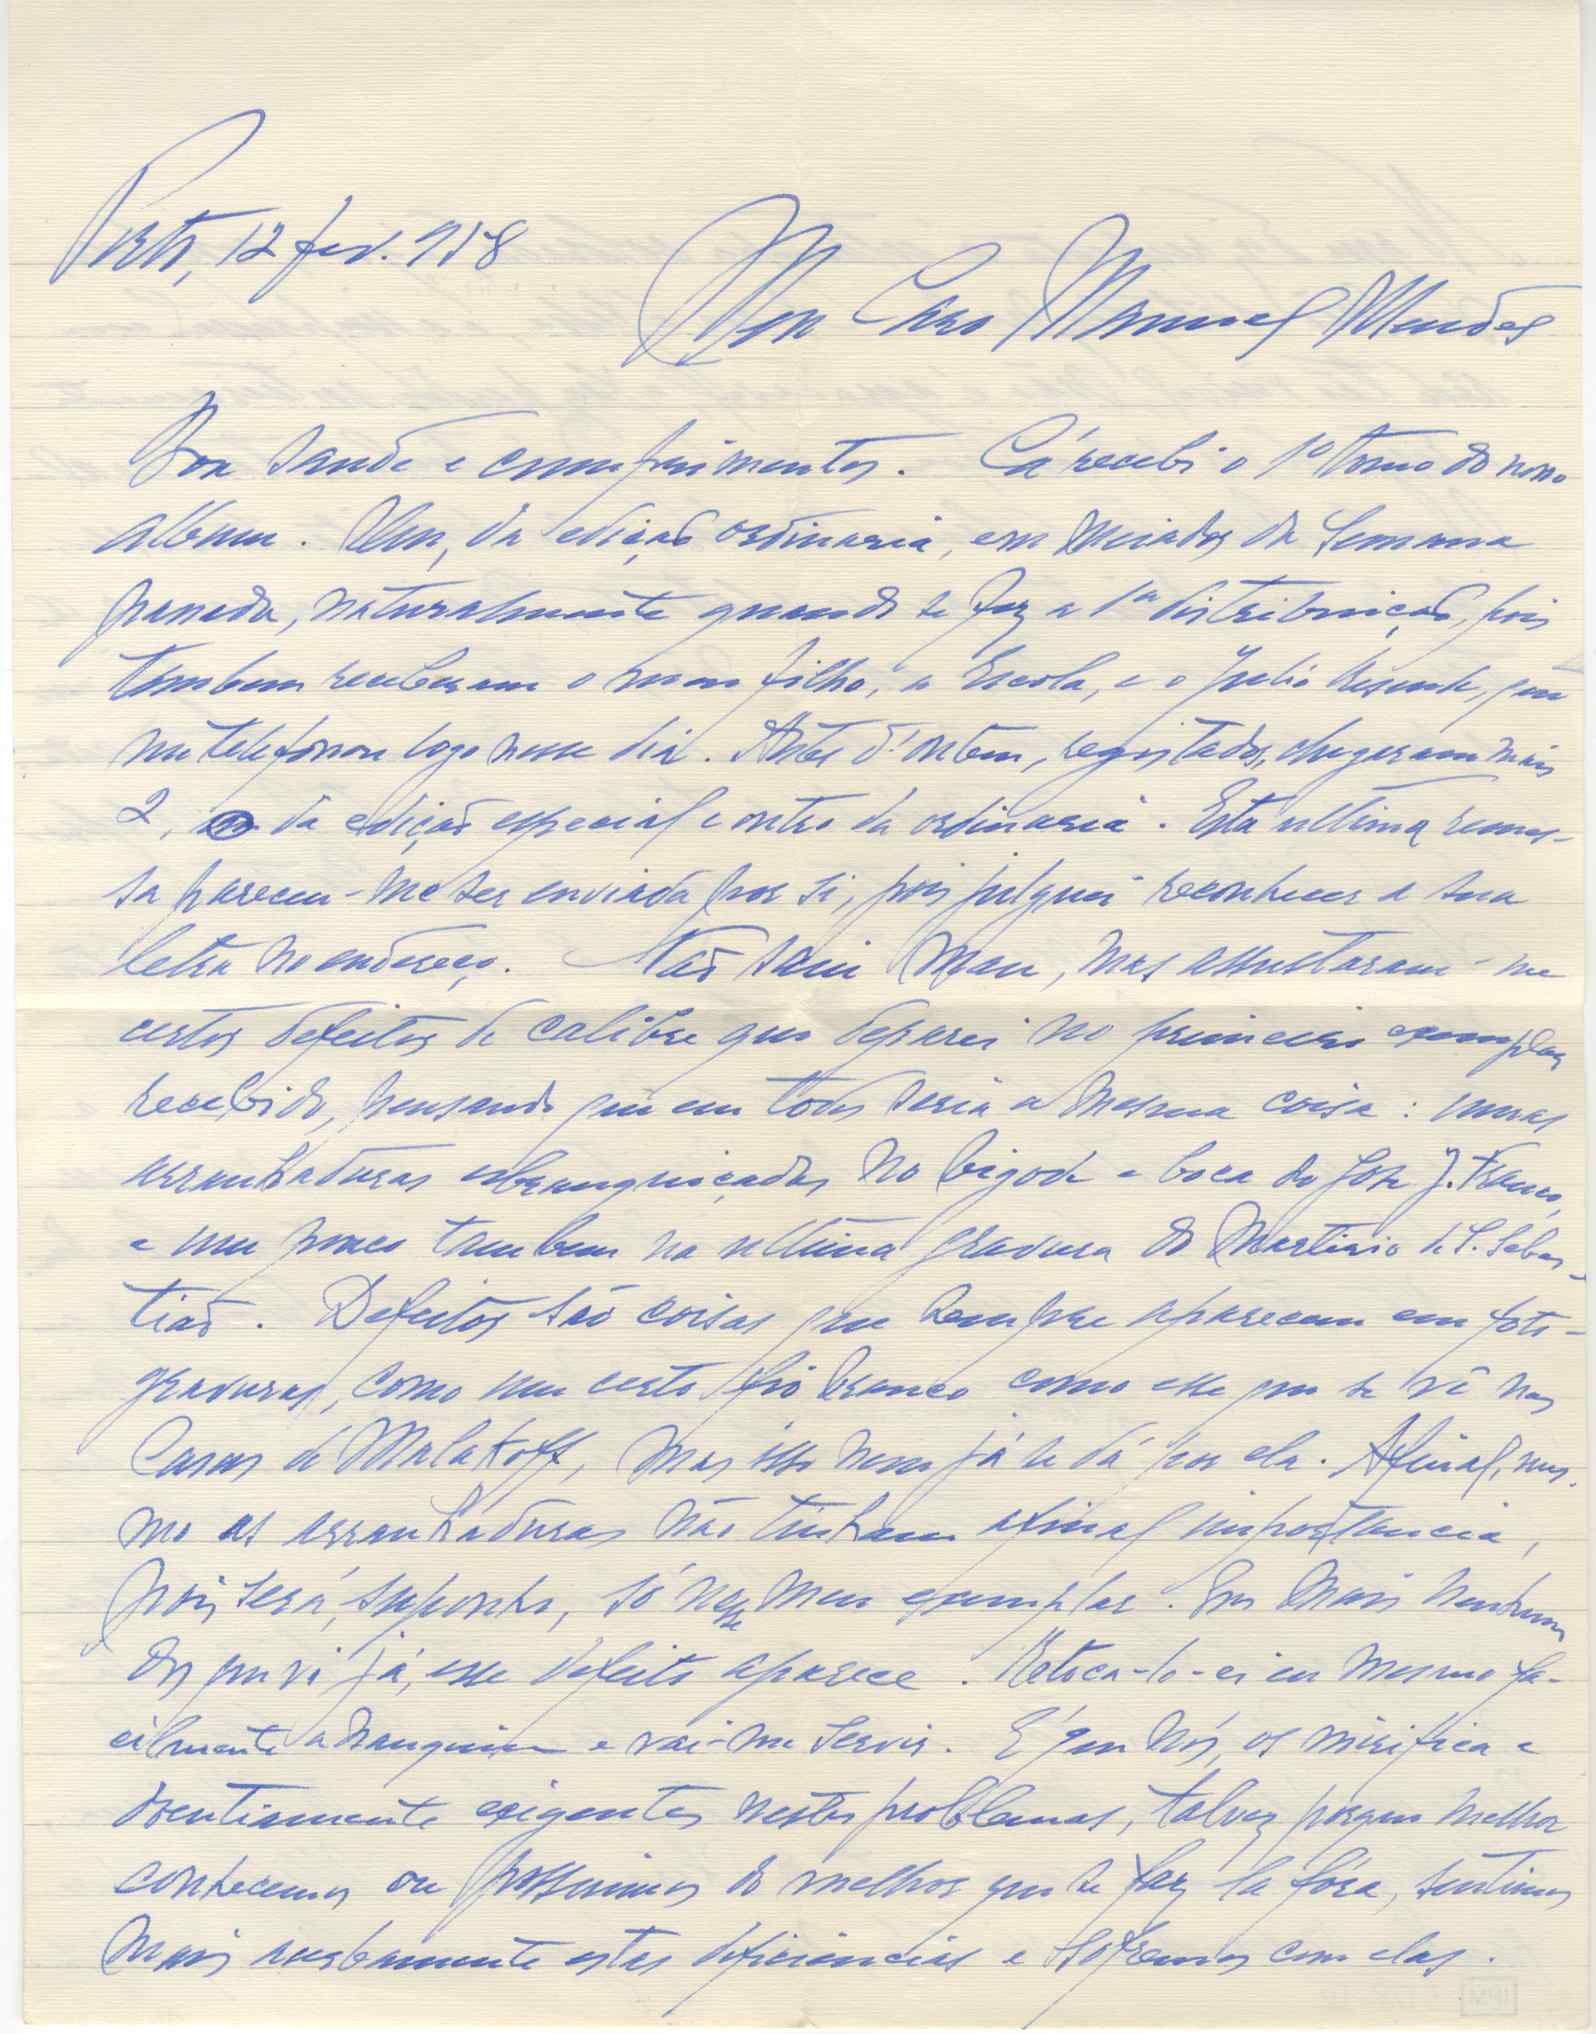 Porto, 12 fev. 958
Meu Caro Manuel Mendes
Boa saude e cumprimentos. Cá recebi o 1º tomo do nosso
album. Um, da edição ordinaria, em meiados da semana
passada, naturalmente quando se fez a 1ª distribuição, pois
tambem receberam o meu filho, a Escola, e o Julio Resende, que
me telefonou logo nesse dia. Antes d'ontem, registados, chegaram mais
2, da edição especial e outro da ordinaria. Esta ultima remes-
sa pareceu-me ser enviada por si, pois julguei reconhecer a sua
letra no endereço. Não saiu mau, mas assustaram-me
certos defeitos de calibre que deparei no primeiro exemplar
recebido, pensando que em todos seria a mesma coisa: umas
arranhaduras esbranquiçadas no bigode e boca do José J. Franco,
e um pouco tambem na ultima gravura do Martirio de S. Sebas-
tião. Defeitos são coisas que sempre aparecem em foto-
gravuras, como um certo fio branco como esse que se vê nas
Casas de Malakoff, mas isso nem já se dá por ela. Afinal, mes-
mo as arranhaduras não tinham afinal importancia,
pois será, suponho, só nesse meu exemplar. Em mais nenhum
dos que vi já, esse defeito aparece. Retoca-lo-ei eu mesmo fa-
cilmente a nanquim e vai-me servir. É que nós, os mirifica e
doentiamente exigentes nestes problemas, talvez porque melhor
conhecemos ou possuimos do melhor que se faz lá fóra, sentimos
mais acerbamente estas deficiencias e sofremos com elas.